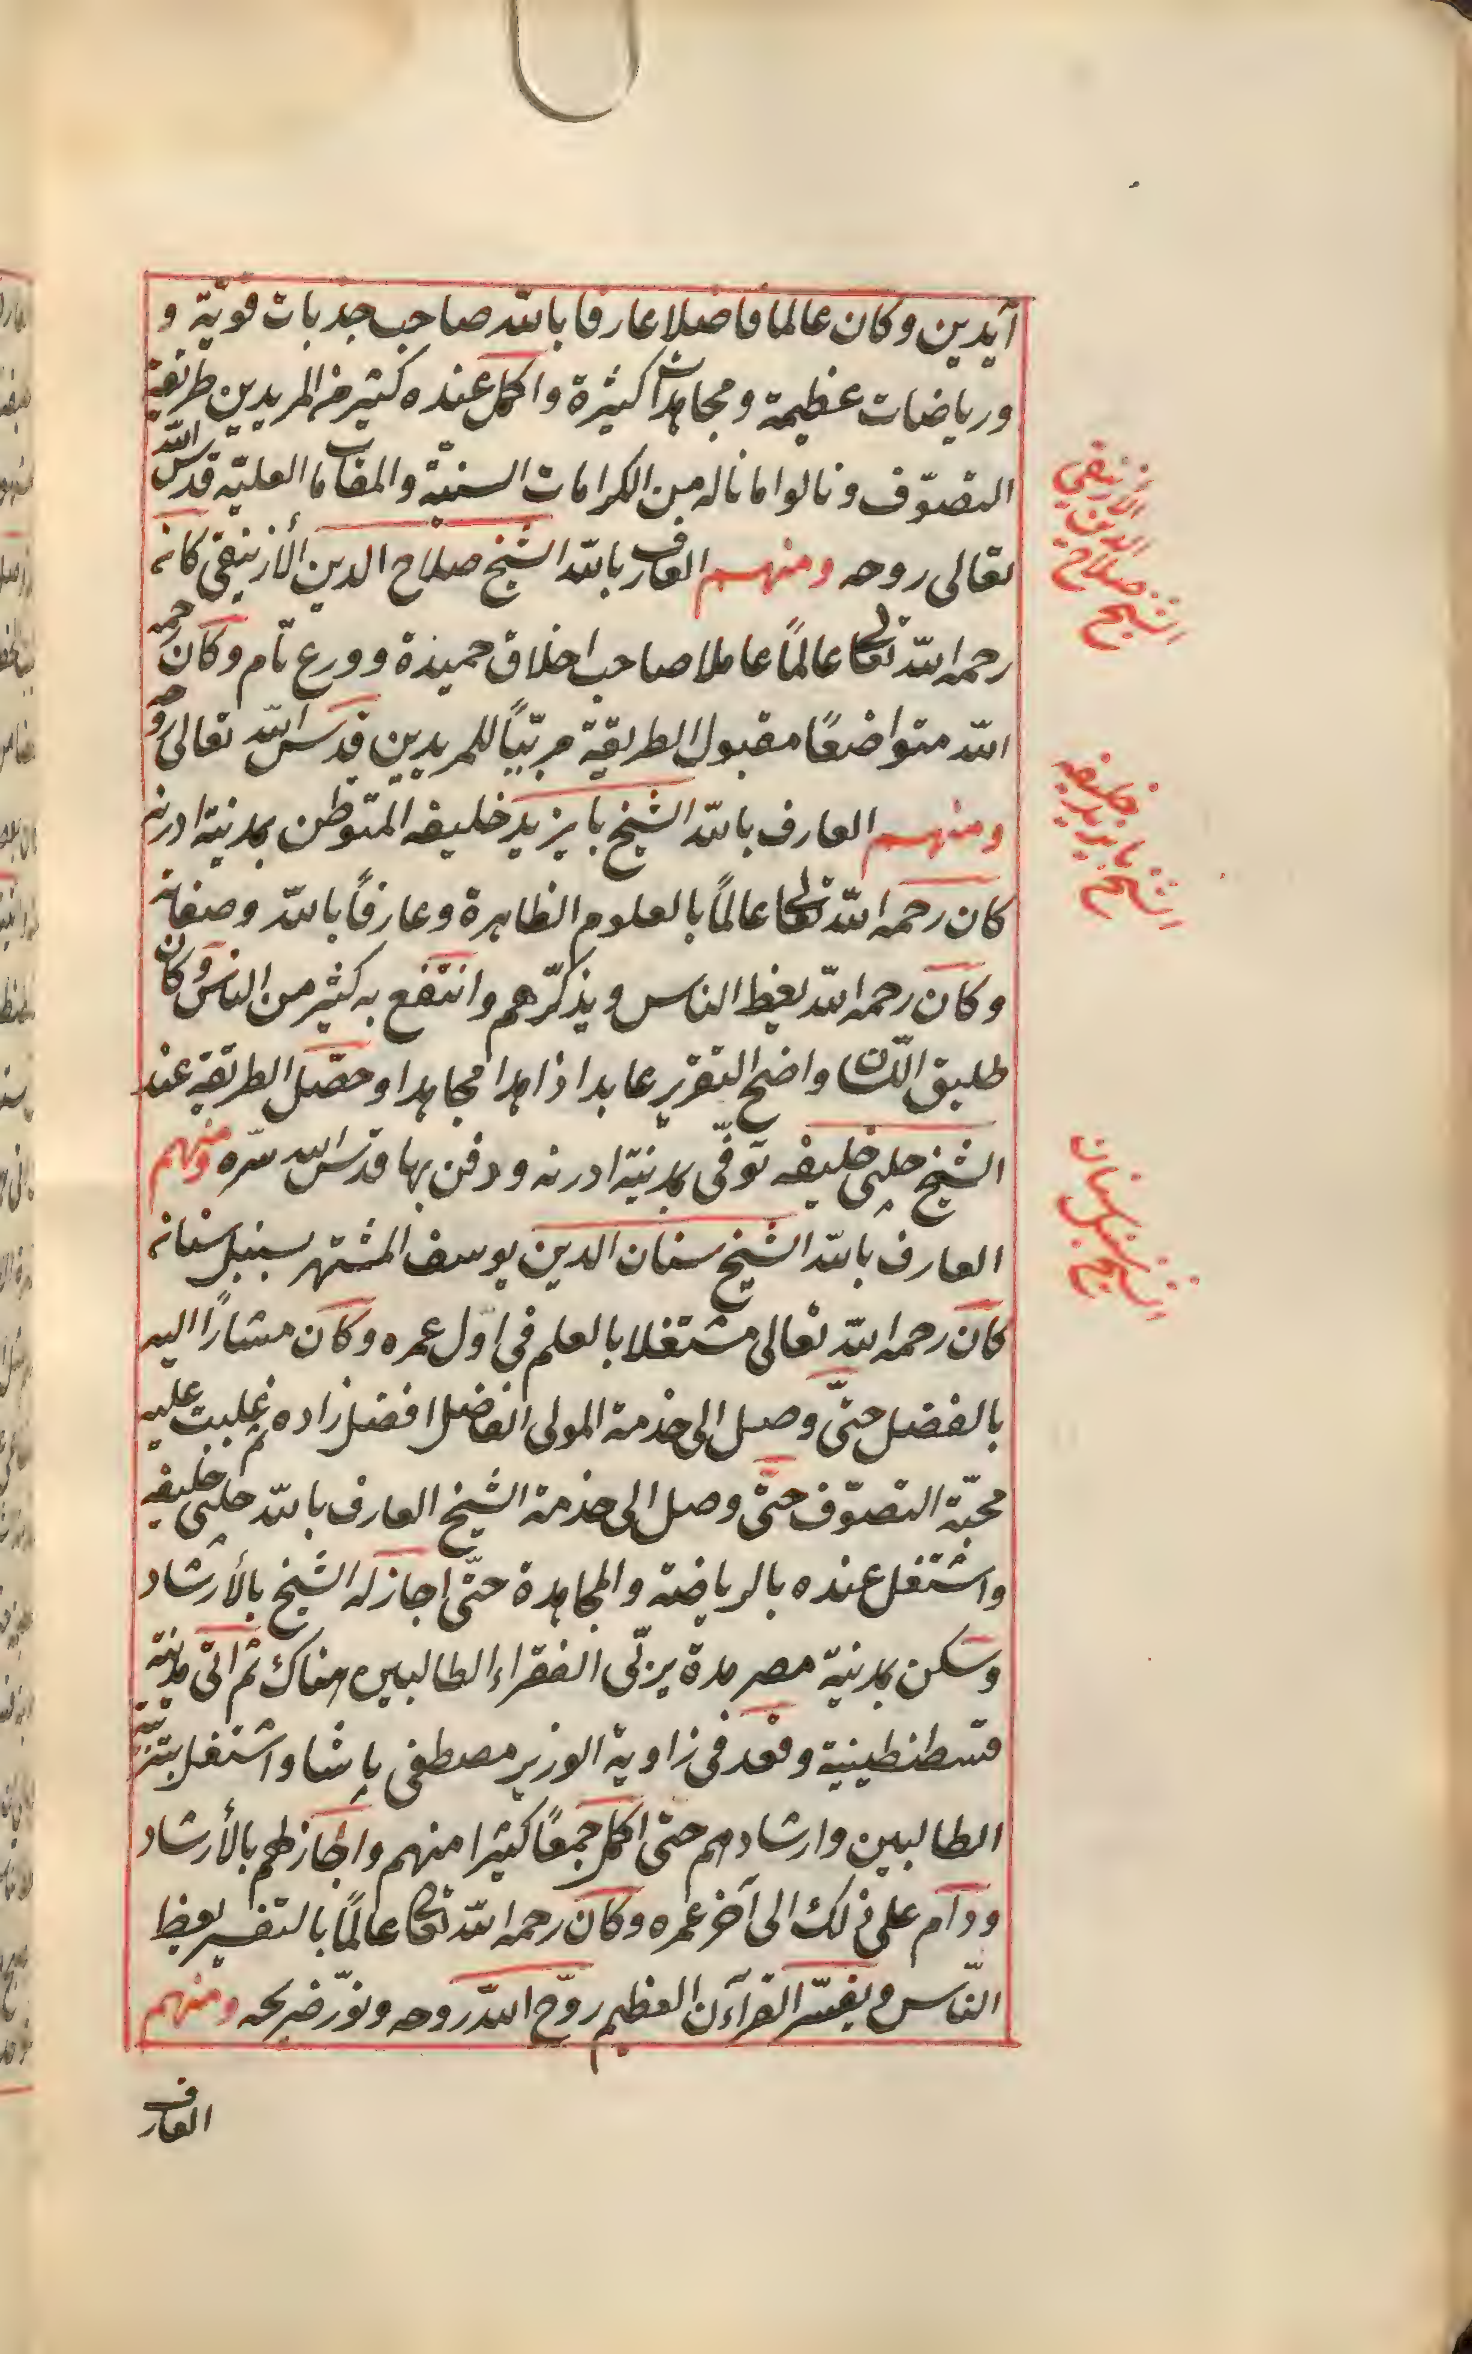 آيدين وكان عالما فاضلا عارفا بالله صاحب جذبات قوية و
ورياضات عظيمة ومجاهدات كثيرة واكمل عنده كثير من المريدين طريقة
التصوّف ونالوا ما ناله من الكرامات السنيّة والمقامات العليّة قدّس الله
تعالى روحه ومنهم العارف بالله الشيخ صلاح الدين الأزنيقى كان
رحمه الله تعالى عالمًا عاملا صاحب اخلاق حميدة وورع تام وكان رحمه
الله متواضعًا مقبول الطريقة مربّيًا للمريدين قدّس الله تعالى روحه
ومنهم العارف بالله الشيخ بايزيد خليفه المتوطن بمدينة ادرنه
كان رحمه الله تعالى عالمًا بالعلوم الظاهرة وعارفًا بالله وصفاته
وكان رحمه الله يعظ الناس ويذكّرهم وانتفع به كثير من الناس وكان
طليق اللسان واضح التقرير عابدا ذاهدا مجاهدا وحصّل الطريقة عند
الشيخ چلبى خليفه توفّى بمدينة ادرنه ودفن بها قدّس الله سرّه ومنهم
العارف بالله الشيخ سنان الدين يوسف المشتهر بسنبل سنان
كان رحمه الله تعالى مشتغلا بالعلم فى اوّل عمره وكان مشارًا اليه
بالفضل حتّى وصل الى خدمة المولى الفاضل افضل زاده ثم غلبت عليه
محبّة التصوّف حتّى وصل الى خدمة الشيخ العارف بالله چلبى خليفه
واشتغل عنده بالرياضة والمجاهدة حتّى اجاز له الشيخ بالأرشاد
وسكن بمدينة مصر مدة يربّى الفقراء الطالبين هناك ثم اتى مدينة
قسطنطينية وقعد فى زاوية الوزير مصطفى پاشا واشتغل بتربية
الطالبين وارشادهم حتى اكمل جمعًا كثيرا منهم واجاز لهم بالأرشاد
ودام على ذلك الى آخر عمره وكان رحمه الله تعالى عالمًا بالتفسير يعظ
النّاس ويفسّر القرآن العظيم روّح الله روحه ونوّر ضريحه ومنهم
العارف
الشيخ صلاح الدين الازنيقي
الشيخ بايزيد خليفه
الشيخ سنبل سنان